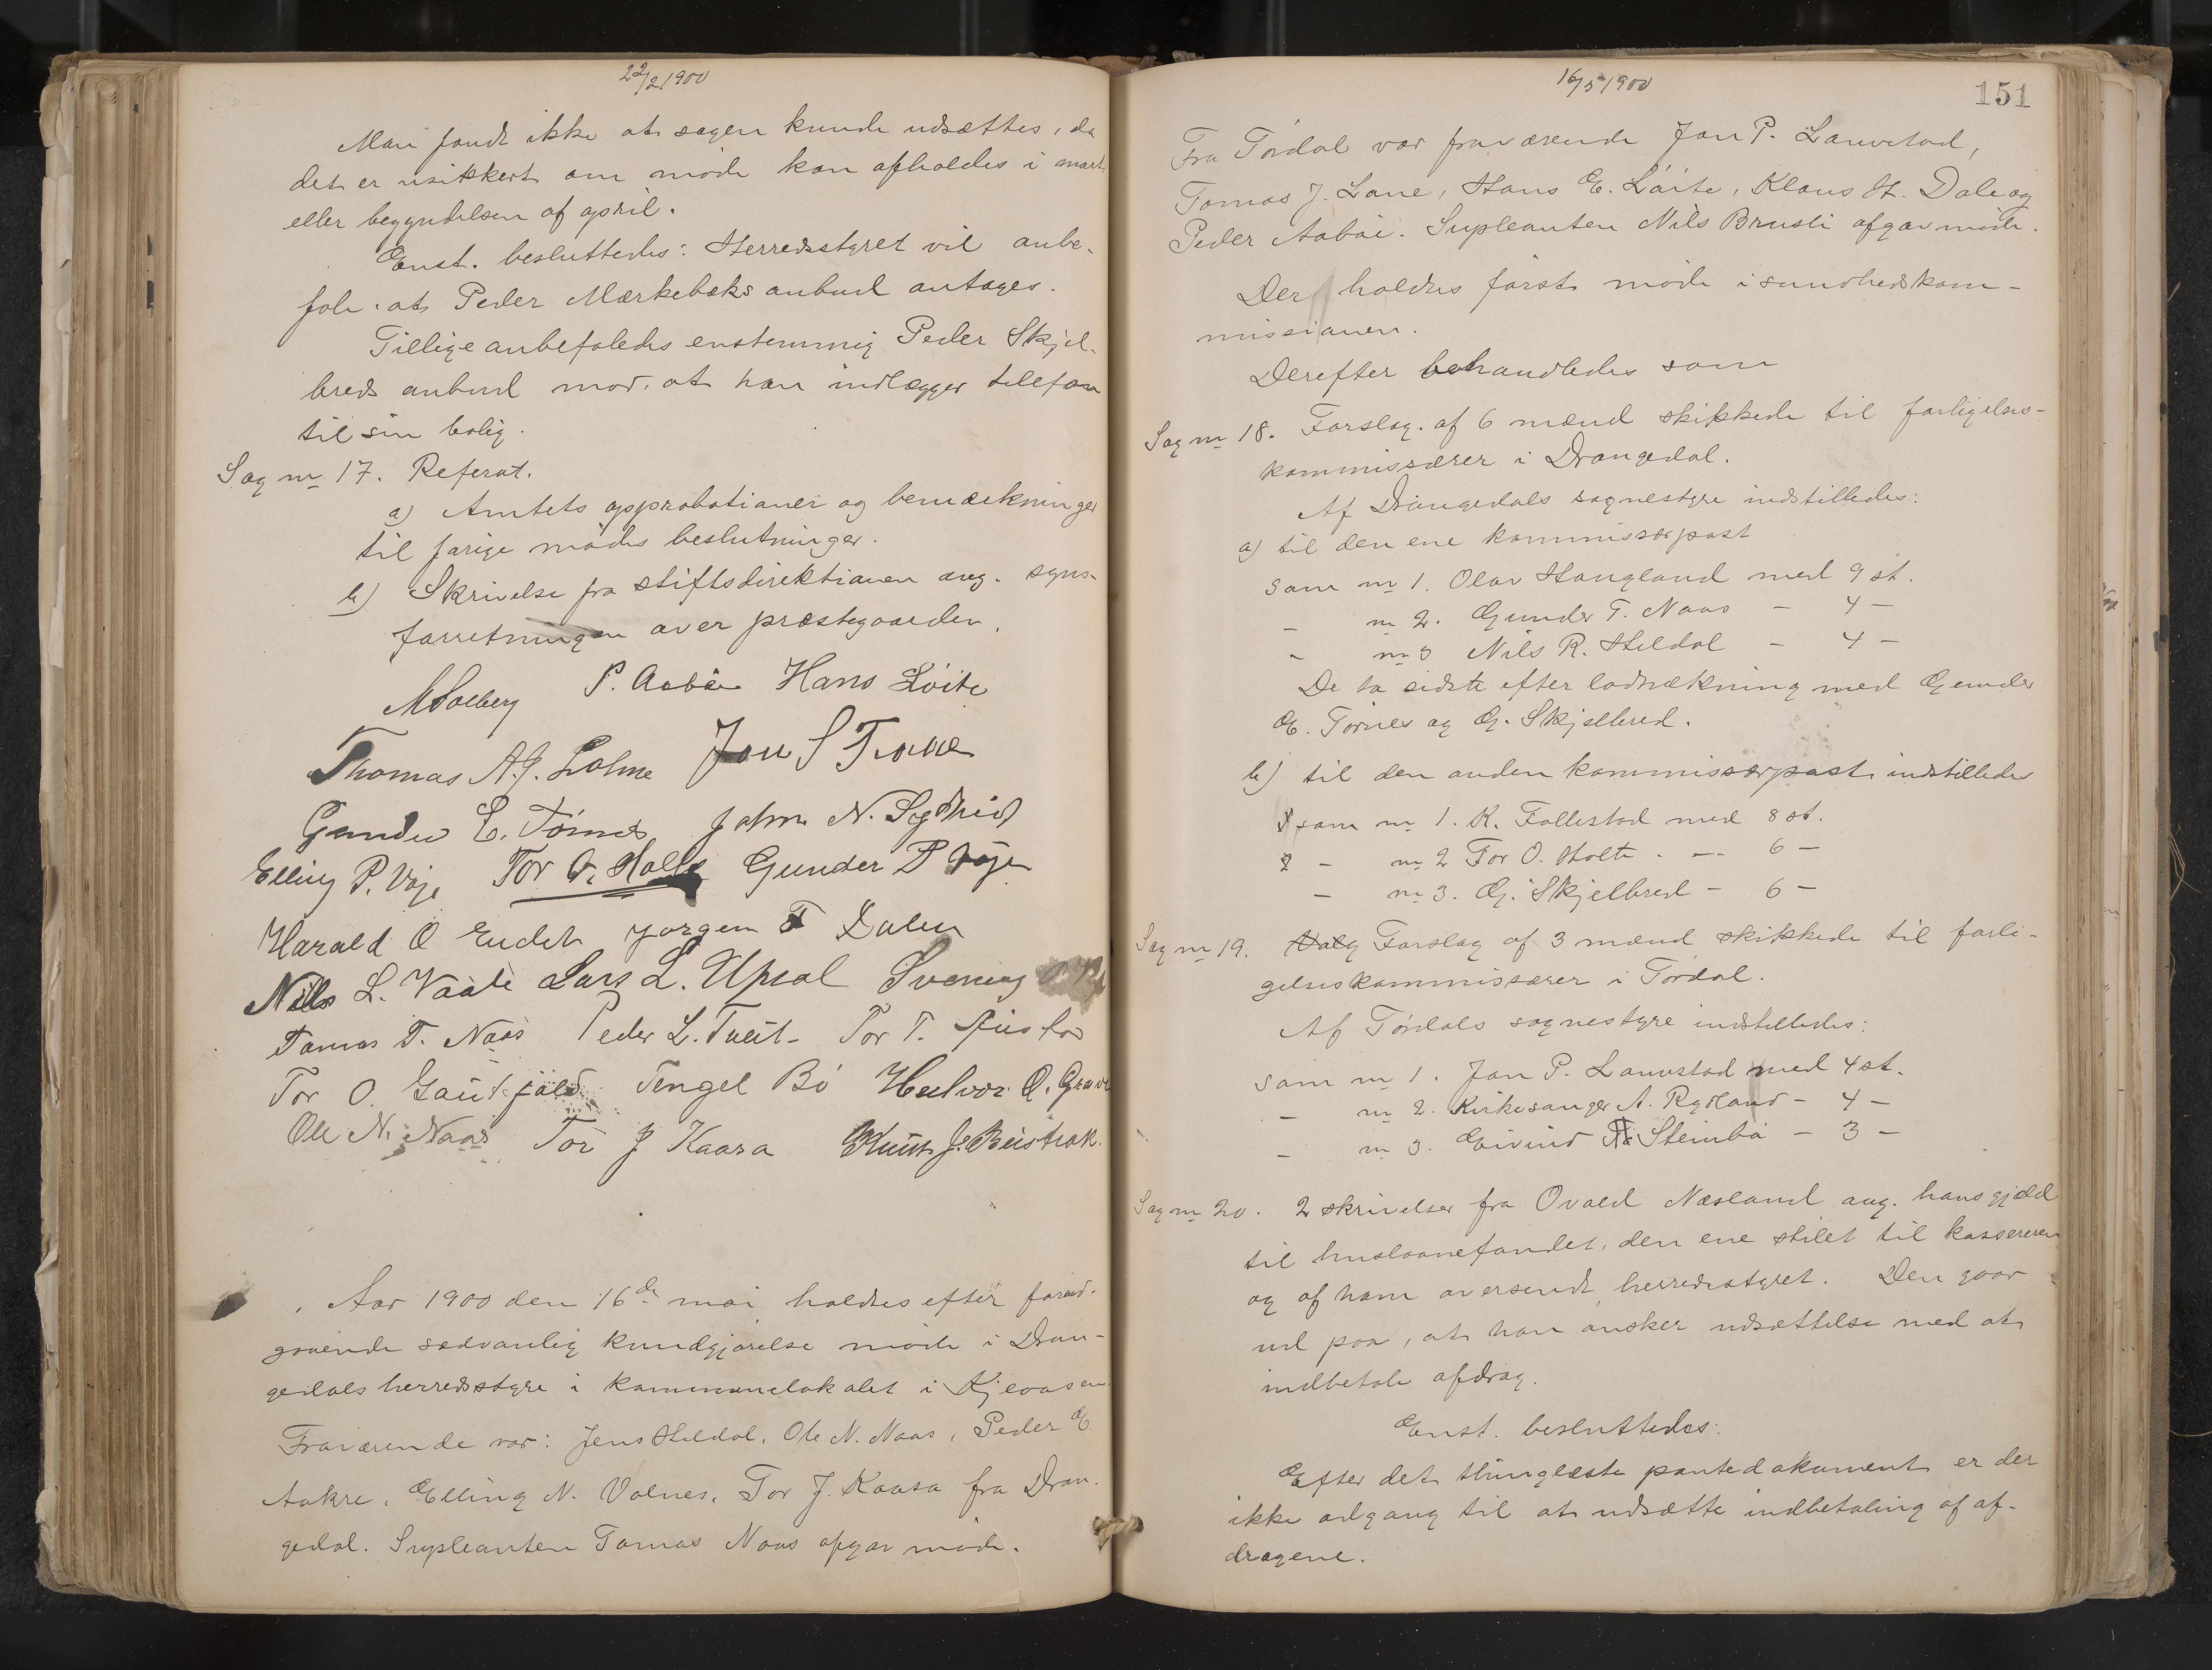 22/2 1900
Man fandt ikke at sagen kunde udsættes, da
det er usikkert om møde kan afholdes i mart
eller begyndelsen af april.
Enst. besluttedes: Herredsstyret vil anbe-
fale at Peder Mærkebæks anbud antages.
Tillige anbefaledes enstemmig Peder Skjel-
breds anbud mod at han indlægger telefon
til sin bolig.
Sag nr 17. Referat.
a) Amtets approbationer og bemærkninger
til forige mødes beslutninger.
b) Skrivelse fra stiftsdirektionen ang. syns-
forretningen over præstegaarden.
M Solberg P. Aabø Hans Löite
Thomas A.J. Jon S Trone
Gunder E. Tørnes John N.
Elling P. Voje Tor O. Holte Gunder P Voje
Harald O Endet Jørgen T Dalen
Nills L. Vaale Lars L. Upsal Svening
Tomas T. Naas Peder L. Tveit Tor T.
Tor O. Gautefald Tengel Bö Halvor O. Grave
Ole N. Naas Tor J Kaasa Knut J. Beistrak.
Aar 1900 den 16de mai holdtes efter forud-
gaaende sedvanlig kundgjørelse møde i Dran-
gedals herredsstyre i kommunelokalet i Kjeoasen
Fraværende var: Jens Heldal, Ole N. Naas, Peder E
Aakre, Elling N. Volnes, Tor J. Kaasa fra Dran-
gedal. Supleanten Tomas Naas afgav møde.
16/5 1900
151
Fra Tördal var fraværende Jon P. Lauvstad,
Tomas J. Lone, Hans E. Löite, Klaus H. Dale og
Peder Aabøe. Supleanten Nils Brusli afgav møde.
Der holdtes først møde i sundhedskom-
missionen.
Derefter behandledes som
Sag nr 18. Forslag af 6 mænd skikkede til forligelses-
kommissærer i Drangedal.
Af Drangedals sognestyre indstilledes:
a) til den ene kommissærpost
som nr 1. Olav Haugland med 9 st.
- nr 2. Gunder T. Naas - 4 -
- nr 3 Nils R. Heldal - 4 -
De to sidste efter lodtrækning med Gunder
E. Törnes og G. Skjelbred.
b) til den anden kommissærpost indstilledes
som nr 1. K. Follestad med 8 st.
- nr 2 Tor O. Holte - 6 -
- nr 3. G. Skjelbred - 6 -
Sag nr 19. Valg Forslag af 3 mænd skikkede til forli-
gelseskommissærer i Tördal.
Af Tördals sognestyre indstilledes:
som nr 1. Jon P. Lauvstad med 4 st.
- nr 2. Kirkesanger A. Rydland - 4 -
- nr 3. Eivind Steinbø - 3 -
Sag nr 20. 2 skrivelser fra Ovald Næsland ang. hans gjæld
til huslaanefondet, den ene stilet til kassereren
og af ham oversendt herredsstyret. Den gaar
ud paa, at han ønsker udsættelse med at
indbetale afdrag.
Enst. besluttedes:
Efter det thinglæste pantedokument er der
ikke adgang til at udsætte indbetaling af af-
dragene.